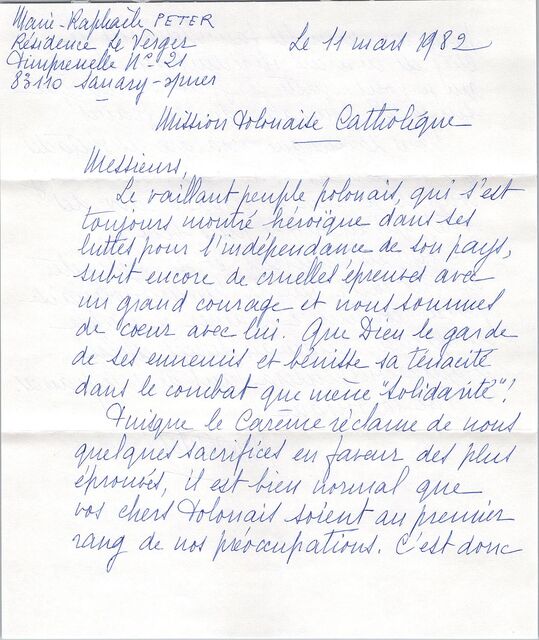 Marie-Raphaële PETER
Résidence Le Verger
Pimprenelle No 21
83110 Sanary-s/mer
Le 11 mars 1982
Mission Polonaise Catholique
Messieurs,
Le vaillant peuple polonais, qui s'est
toujours montré héroïque dans ses
luttes pour l'indépendance de son pays,
subit encore de cruelles épreuves avec
un grand courage et nous sommes
de coeur avec lui. Que Dieu le garde
de ses ennemis et bénisse sa tenacité
dans le combat que mène "Solidarité"!
Puisque le Carême réclame de nous
quelques sacrifices en faveur des plus
éprouvés, il est bien normal que
vos chers Polonais soient au premier
rang de nos préoccupations. C'est donc